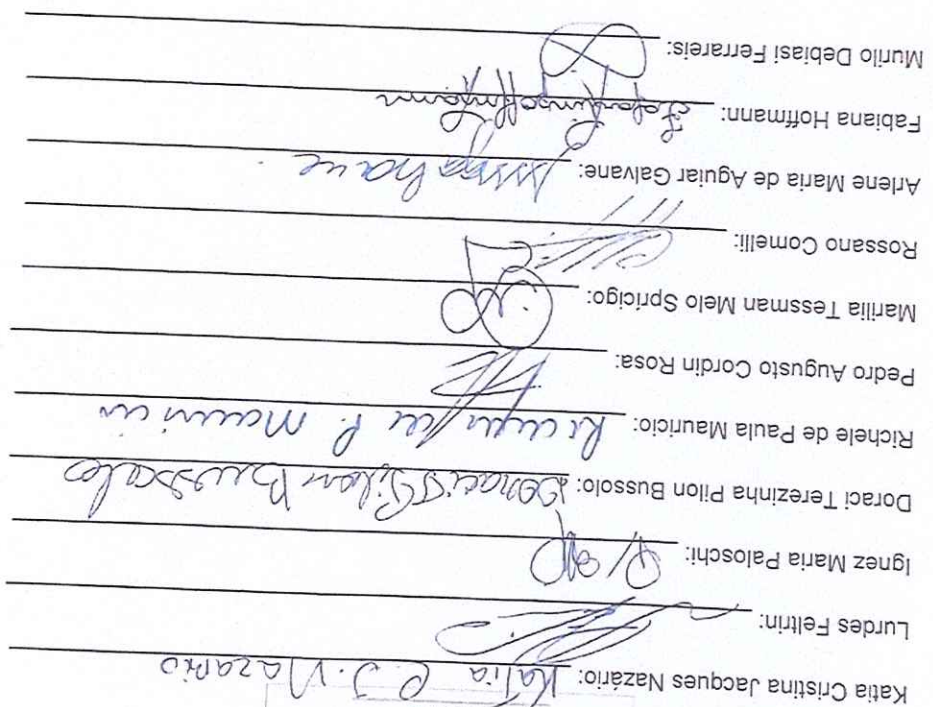 Katia Cristina Jacques Nazário: Katia C. J. Nazário
Lurdes Feltrin:
Ignez Maria Paloschi:
Doraci Terezinha Pilon Bussolo: Doraci T Pilon Bussolo
Richele de Paula Mauricio: Richele de P. Mauricio
Pedro Augusto Cordin Rosa:
Marilia Tessman Melo Spricigo:
Rossano Comelli:
Arlene Maria de Aguiar Galvane:
Fabiana Hoffmann:
Murilo Debiasi Ferrareis: